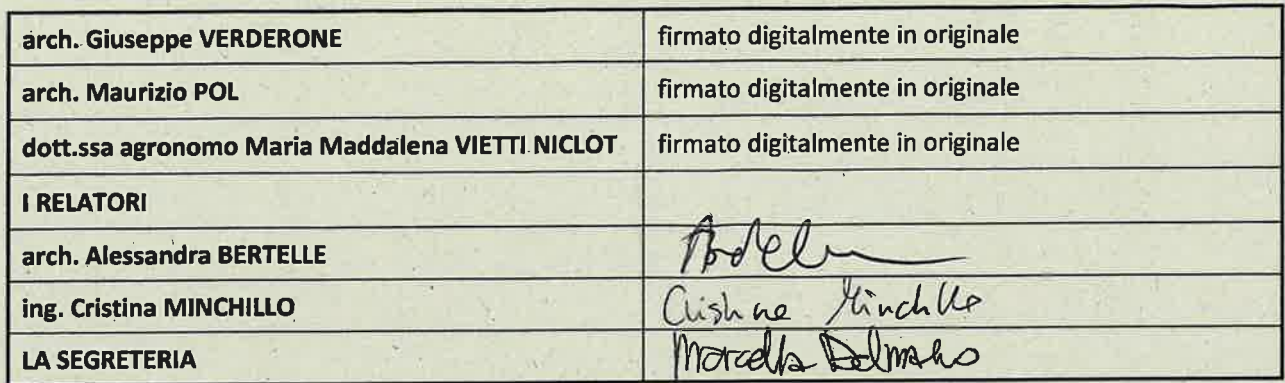 arch. Giuseppe VERDERONE firmato digitalmente in originale
arch. Maurizio POL firmato digitalmente in originale
dott.ssa agronomo Maria Maddalena VIETTI NICLOT firmato digitalmente in originale
I RELATORI
arch. Alessandra BERTELLE
ing. Cristina MINCHILLO Cristina Minchillo
LA SEGRETERIA Marcella